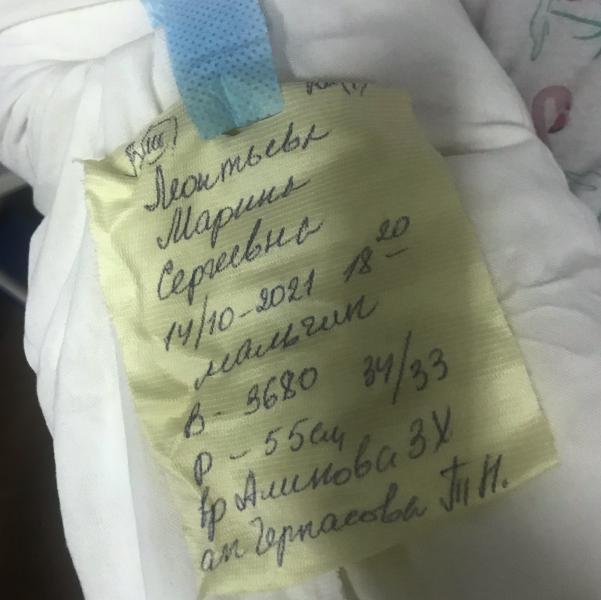 Леонтьева
Марина
Сергеевна
14/10-2021 18 20
мальчик
В- 3680 34/33
Р - 55см
вр Алинова ЗХ
ак Черпасова Т Н.